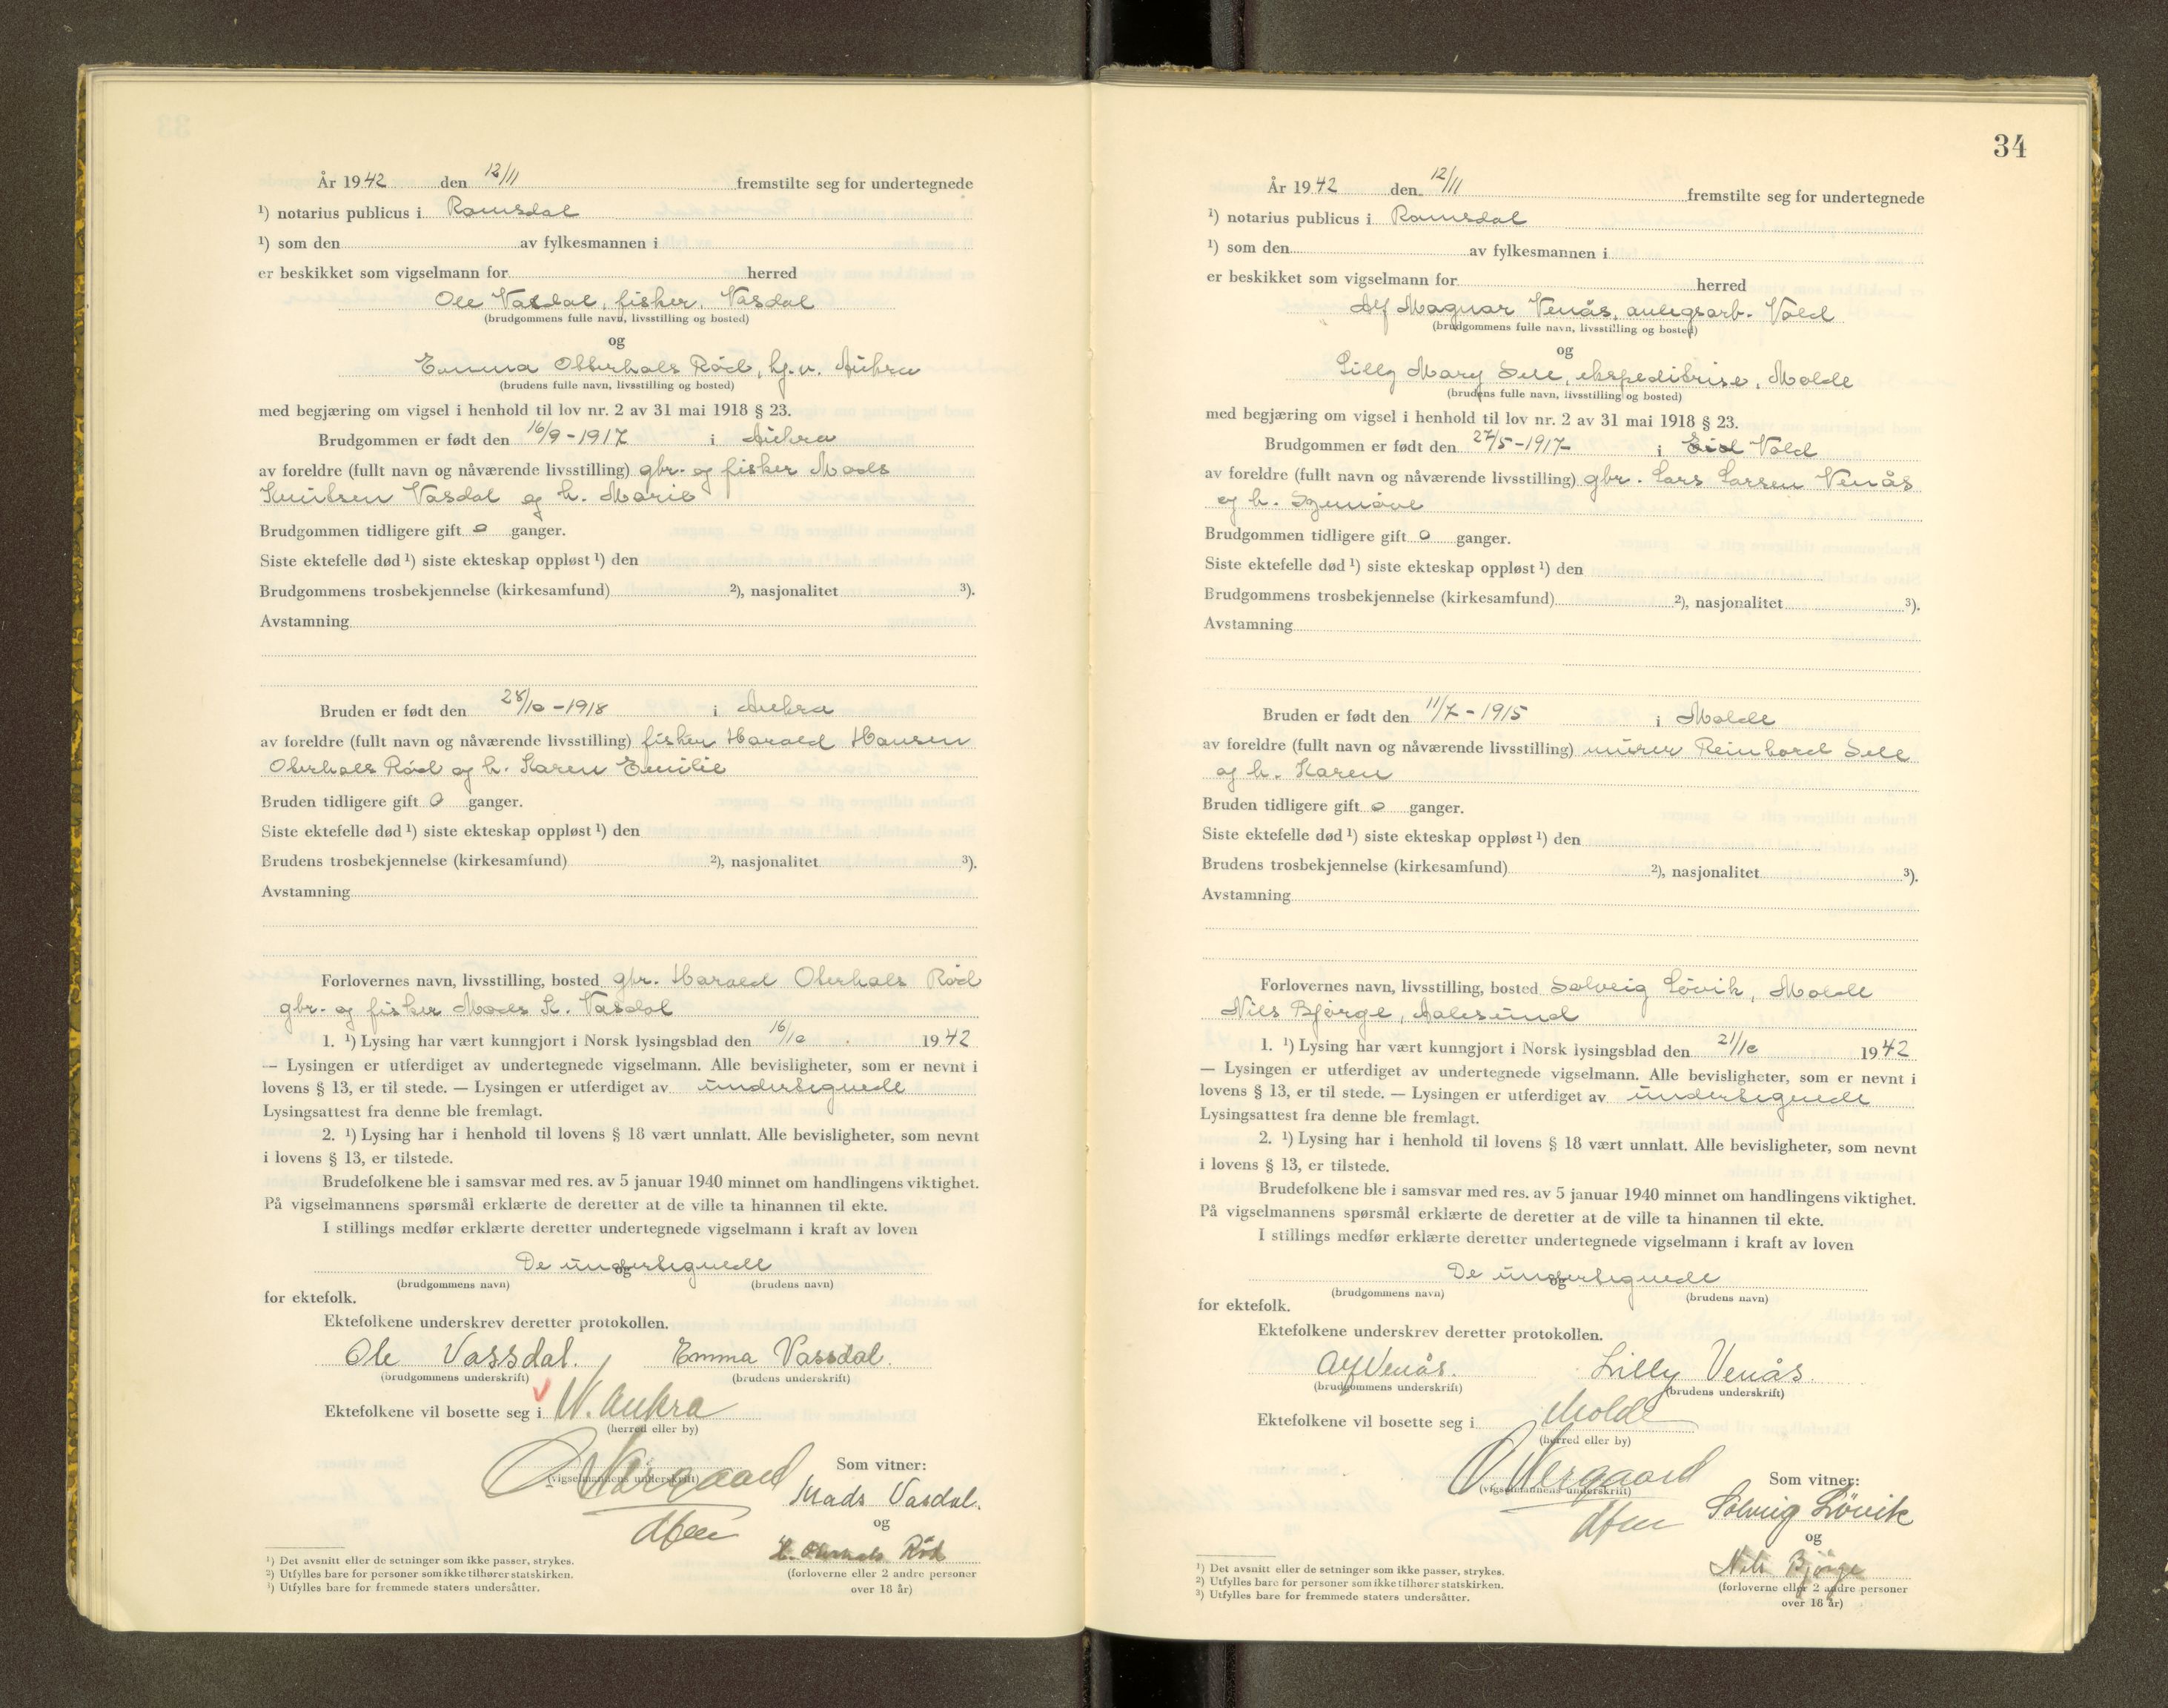 År 1942 den 12/11 fremstilte seg for undertegnede
¹) notarius publicus i Romsdal
¹) som den av fylkesmannen i
er beskikket som vigselmann for herred
Ole Vasdal, fisker, Vasdal
(brudgommens fulle navn, livsstilling og bosted)
og
Emma Otterhals Rød, hj.v. Aukra
(brudens fulle navn, livsstilling og bosted)
med begjæring om vigsel i henhold til lov nr. 2 av 31 mai 1918 § 23.
Brudgommen er født den 16/9-1917 i Aukra
av foreldre (fullt navn og nåværende livsstilling) gbr. og fisker Mads
Knutsen Vasdal og h. Marie
Brudgommen tidligere gift 0 ganger.
Siste ektefelle død ¹) siste ekteskap oppløst ¹) den
Brudgommens trosbekjennelse (kirkesamfund) ²), nasjonalitet ³).
Avstamning
Bruden er født den 28/10-1918 i Aukra
av foreldre (fullt navn og nåværende livsstilling) fisker Harald Hansen
Oterhals Rød og h. Karen Emilie
Bruden tidligere gift 0 ganger.
Siste ektefelle død ¹) siste ekteskap oppløst ¹) den
Brudens trosbekjennelse (kirkesamfund) ²), nasjonalitet ³).
Avstamning
Forlovernes navn, livsstilling, bosted gbr. Harald Oterhals Rød
gbr. og fisker Mads K. Vasdal
1. ¹) Lysing har vært kunngjort i Norsk lysingsblad den 16/10 1942
— Lysingen er utferdiget av undertegnede vigselmann. Alle bevisligheter, som er nevnt i
lovens § 13, er til stede. — Lysingen er utferdiget av undertegnede
Lysingsattest fra denne ble fremlagt.
2. ¹) Lysing har i henhold til lovens § 18 vært unnlatt. Alle bevisligheter, som nevnt
i lovens § 13, er tilstede.
Brudefolkene ble i samsvar med res. av 5 januar 1940 minnet om handlingens viktighet.
På vigselmannens spørsmål erklærte de deretter at de ville ta hinannen til ekte.
I stillings medfør erklærte deretter undertegnede vigselmann i kraft av loven
De undertegnede
og
(brudgommens navn) (brudens navn)
for ektefolk.
Ektefolkene underskrev deretter protokollen.
Ole Vassdal. Emma Vassdal.
(brudgommens underskrift) (brudens underskrift)
Ektefolkene vil bosette seg i N. Aukra
(herred eller by)
(vigselmannens underskrift)
Som vitner:
Mads Vasdal.
og
H. Oterhals Rød
(forloverne eller 2 andre personer
over 18 år)
¹) Det avsnitt eller de setninger som ikke passer, strykes.
²) Utfylles bare for personer som ikke tilhører statskirken.
³) Utfylles bare for fremmede staters undersåtter.
34
År 1942 den 12/11 fremstilte seg for undertegnede
¹) notarius publicus i Romsdal
¹) som den av fylkesmannen i
er beskikket som vigselmann for herred
Alf Magnar Venås, anlegsarb. Vold
(brudgommens fulle navn, livsstilling og bosted)
og
Lilly Mary Sele, ekspeditrise, Molde
(brudens fulle navn, livsstilling og bosted)
med begjæring om vigsel i henhold til lov nr. 2 av 31 mai 1918 § 23.
Brudgommen er født den 27/5-1917 i Eid Vold
av foreldre (fullt navn og nåværende livsstilling) gbr. Lars Larsen Venås
og h. Synnøve
Brudgommen tidligere gift 0 ganger.
Siste ektefelle død ¹) siste ekteskap oppløst ¹) den
Brudgommens trosbekjennelse (kirkesamfund) ²), nasjonalitet ³).
Avstamning
Bruden er født den 11/7-1915 i Molde
av foreldre (fullt navn og nåværende livsstilling) murer Reinhard Sele
og h. Karen
Bruden tidligere gift 0 ganger.
Siste ektefelle død ¹) siste ekteskap oppløst ¹) den
Brudens trosbekjennelse (kirkesamfund) ²), nasjonalitet ³).
Avstamning
Forlovernes navn, livsstilling, bosted Solveig Løvik, Molde
Nils Bjørge, Aalesund
1. ¹) Lysing har vært kunngjort i Norsk lysingsblad den 21/10 1942
— Lysingen er utferdiget av undertegnede vigselmann. Alle bevisligheter, som er nevnt i
lovens § 13, er til stede. — Lysingen er utferdiget av undertegnede
Lysingsattest fra denne ble fremlagt.
2. ¹) Lysing har i henhold til lovens § 18 vært unnlatt. Alle bevisligheter, som nevnt
i lovens § 13, er tilstede.
Brudefolkene ble i samsvar med res. av 5 januar 1940 minnet om handlingens viktighet.
På vigselmannens spørsmål erklærte de deretter at de ville ta hinannen til ekte.
I stillings medfør erklærte deretter undertegnede vigselmann i kraft av loven
De undertegnede
og
(brudgommens navn) (brudens navn)
for ektefolk.
Ektefolkene underskrev deretter protokollen.
Alf Venås. Lilly Venås.
(brudgommens underskrift) (brudens underskrift)
Ektefolkene vil bosette seg i Molde
(herred eller by)
(vigselmannens underskrift)
Som vitner:
Solveig Lövik
og
Nils Bjørge
(forloverne eller 2 andre personer
over 18 år)
¹) Det avsnitt eller de setninger som ikke passer, strykes.
²) Utfylles bare for personer som ikke tilhører statskirken.
³) Utfylles bare for fremmede staters undersåtter.